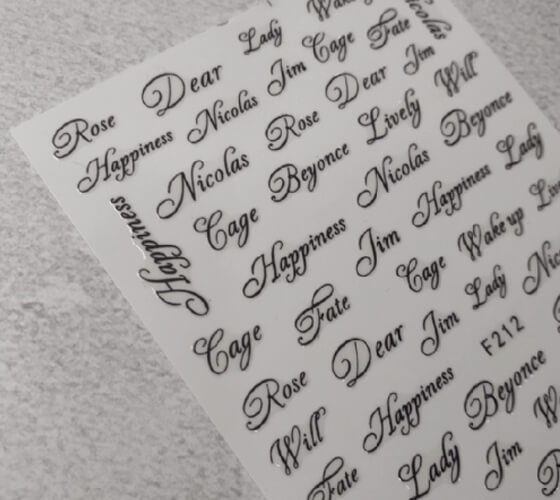 Rose Dear Lady
Happiness Nicolas Jim Cage Fate Nicolas
Nicolas Rose Dear Jim
Cage Beyonce Lively Will
Happiness
Happiness Nicolas Beyonce
Jim Happiness Lady
Cage Fate Cage Wake up
Rose Dear Jim Lady Nic
F212
Will Happiness Beyonce
Fate Lady Jim